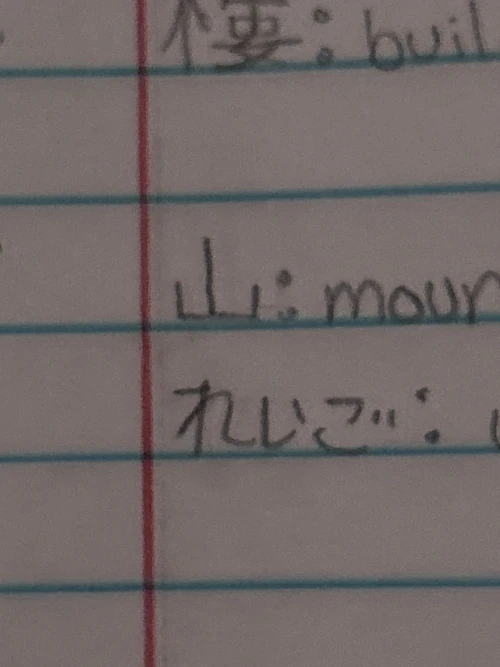 樓: buil
山: moun
れいご: